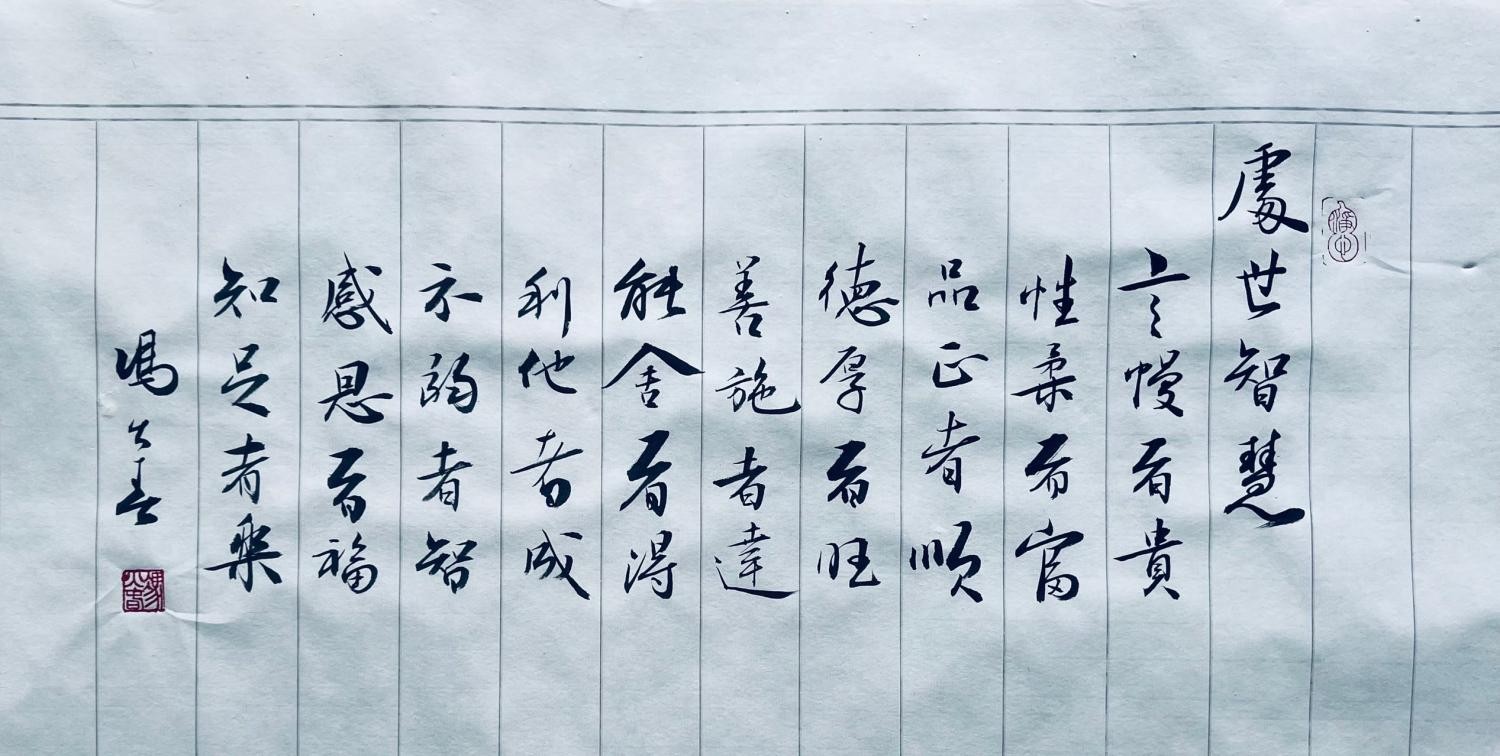 處世智慧
言慢者貴
性柔者富
品正者順
德厚者旺
善施者達
能舍者得
利他者成
示弱者智
感恩者福
知足者樂
馮